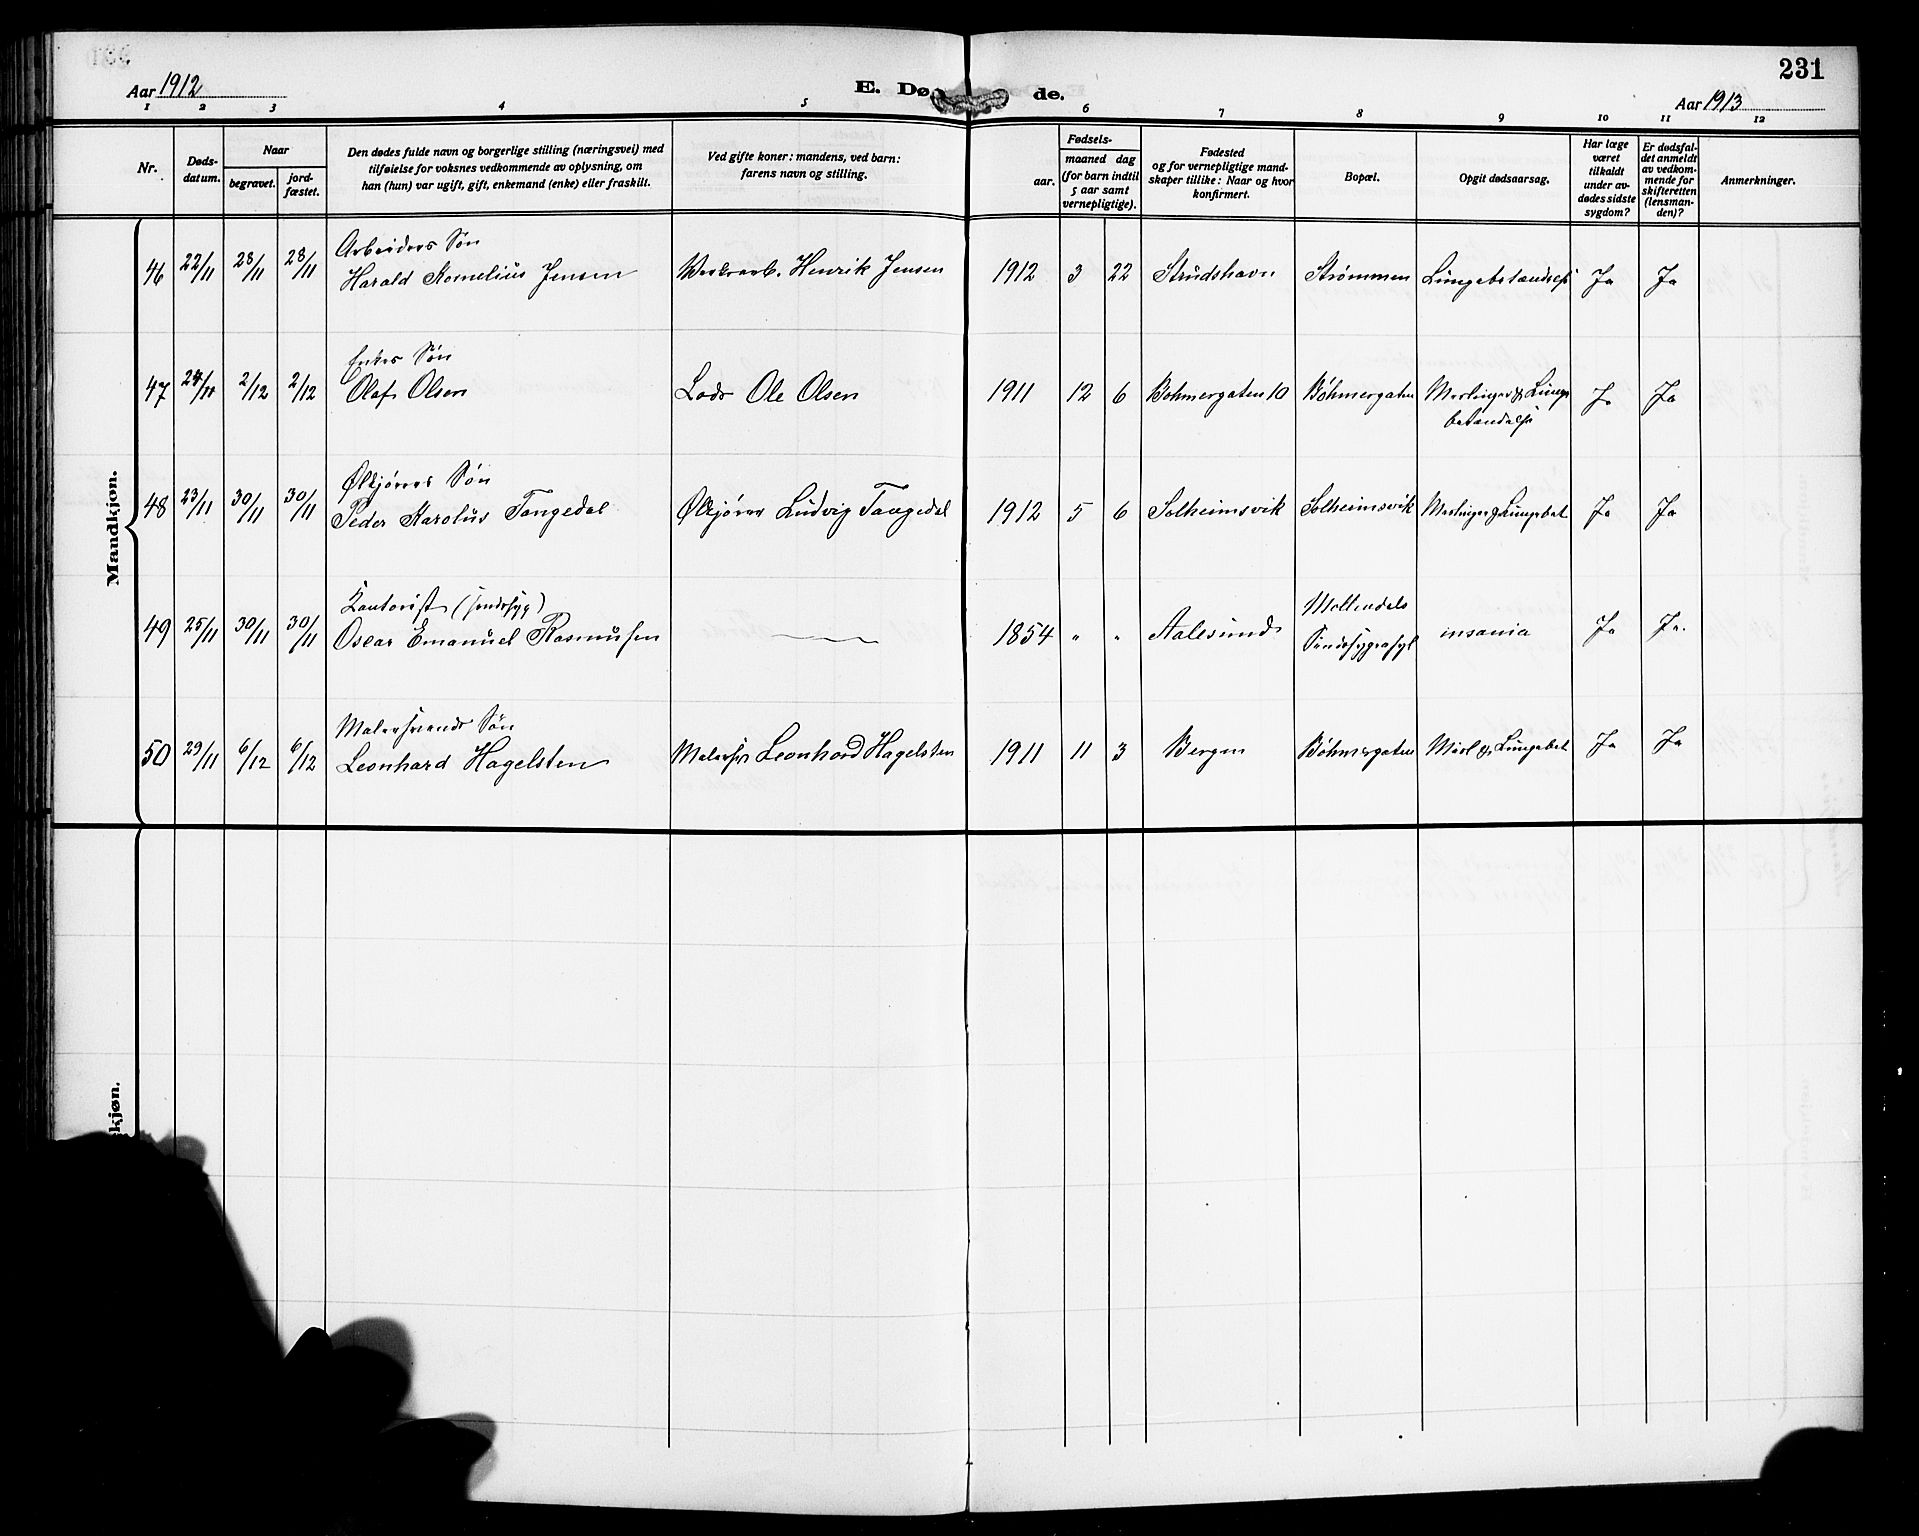 Aar 1912
E. Dø
de.
231
Aar 1913
1 2 3 4 5 6 7 8 9 10 11 12
Nr.
Døds-
datum.
Naar
begravet.
jord-
fæstet.
Den dødes fulde navn og borgerlige stilling (næringsvei) med
tilføielse for voksnes vedkommende av oplysning, om
han (hun) var ugift, gift, enkemand (enke) eller fraskilt.
Ved gifte koner: mandens, ved barn:
farens navn og stilling.
Fødsels-
aar.
maaned dag
(for barn indtil
5 aar samt
vernepligtige).
Fødested
og for vernepligtige mand-
skaper tillike: Naar og hvor
konfirmert.
Bopæl.
Opgit dødsaarsag.
Har læge
været
tilkaldt
under av-
dødes sidste
sygdom?
Er dødsfal-
det anmeldt
av vedkom-
mende for
skifteretten
(lensman-
den)?
Anmerkninger.
Mandkjøn.
Arbeiders Søn
46 22/11 28/11 28/11 Harald Kornelius Jensen Henrik Jensen 1912 3 22 Strudshavn Strømmen Lungebetændelse Ja Ja
Enkes Søn
47 24/11 2/12 2/12 Olaf Olsen Lods Ole Olsen 1911 12 6 Bøhmergaten 10 Bøhmergaten Meslinger & Lunge Ja Ja
betændelse
Ølkjørers Søn
48 23/11 30/11 30/11 Peder Karolus Tangedal Ølkjører Ludvig Tangedal 1912 5 6 Solheimsvik Solheimsvik Meslinger & Lungebet Ja Ja
Kontorist (sindssyg) Møllendals
49 25/11 30/11 30/11 Oscar Emanuel Rasmussen 1854 " " Aalesund Sindssygeasyl insania Ja Ja.
Malersvends Søn
50 29/11 6/12 6/12 Leonhard Hagelsten Malersv Leonhard Hagelsten 1911 11 3 Bergen Bøhmergaten Mesl & Lungebet Ja Ja
skjøn.